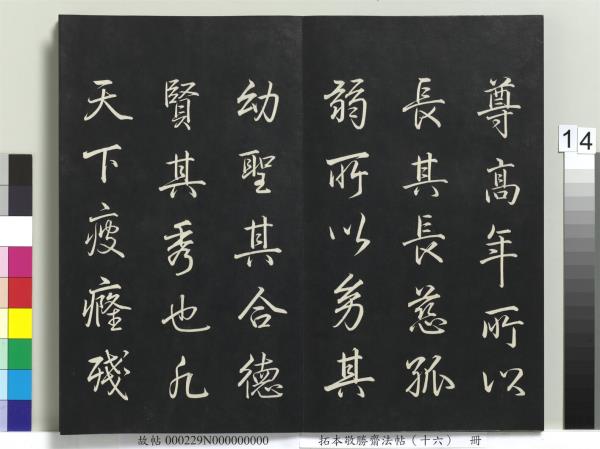 尊高年所以
長其長慈孤
弱所以幼其
幼聖其合德
賢其秀也凡
天下疲癃殘
14
故帖 000229N000000000
拓本敬勝齋法帖（十六） 冊